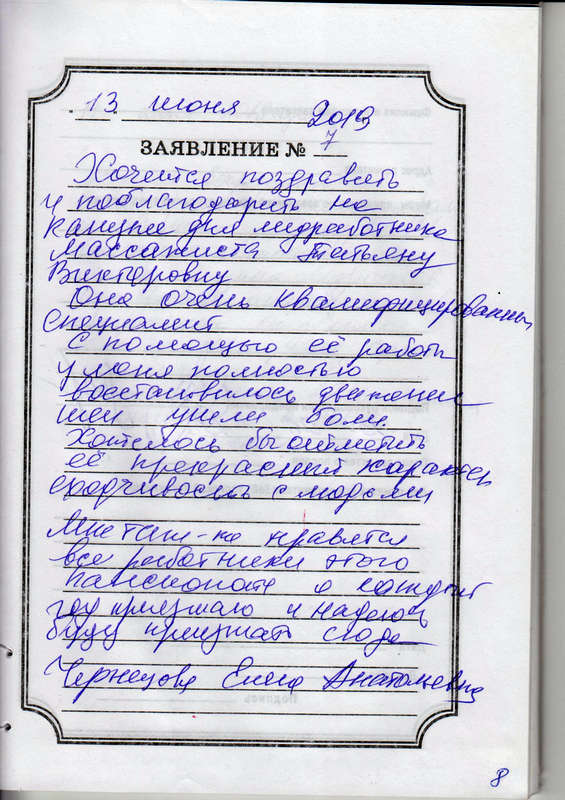 13 июня 2019
ЗАЯВЛЕНИЕ № 7
Хочется поздравить
и поблагодарить на
кануне дня медработника
массажиста Татьяну
Викторовну
Она очень квалифицированный
специалист
С помощью её работы
у меня полностью
восстановилось движение
шеи ушли боли.
Хотелось бы отметить
её прекрасный характер
сходчивость с людьми
Мне так-же нравятся
все работники этого
пансионата я каждый
год приезжаю и надеюсь
буду приезжать сюда
Чернецова Елена Анатольевна
8